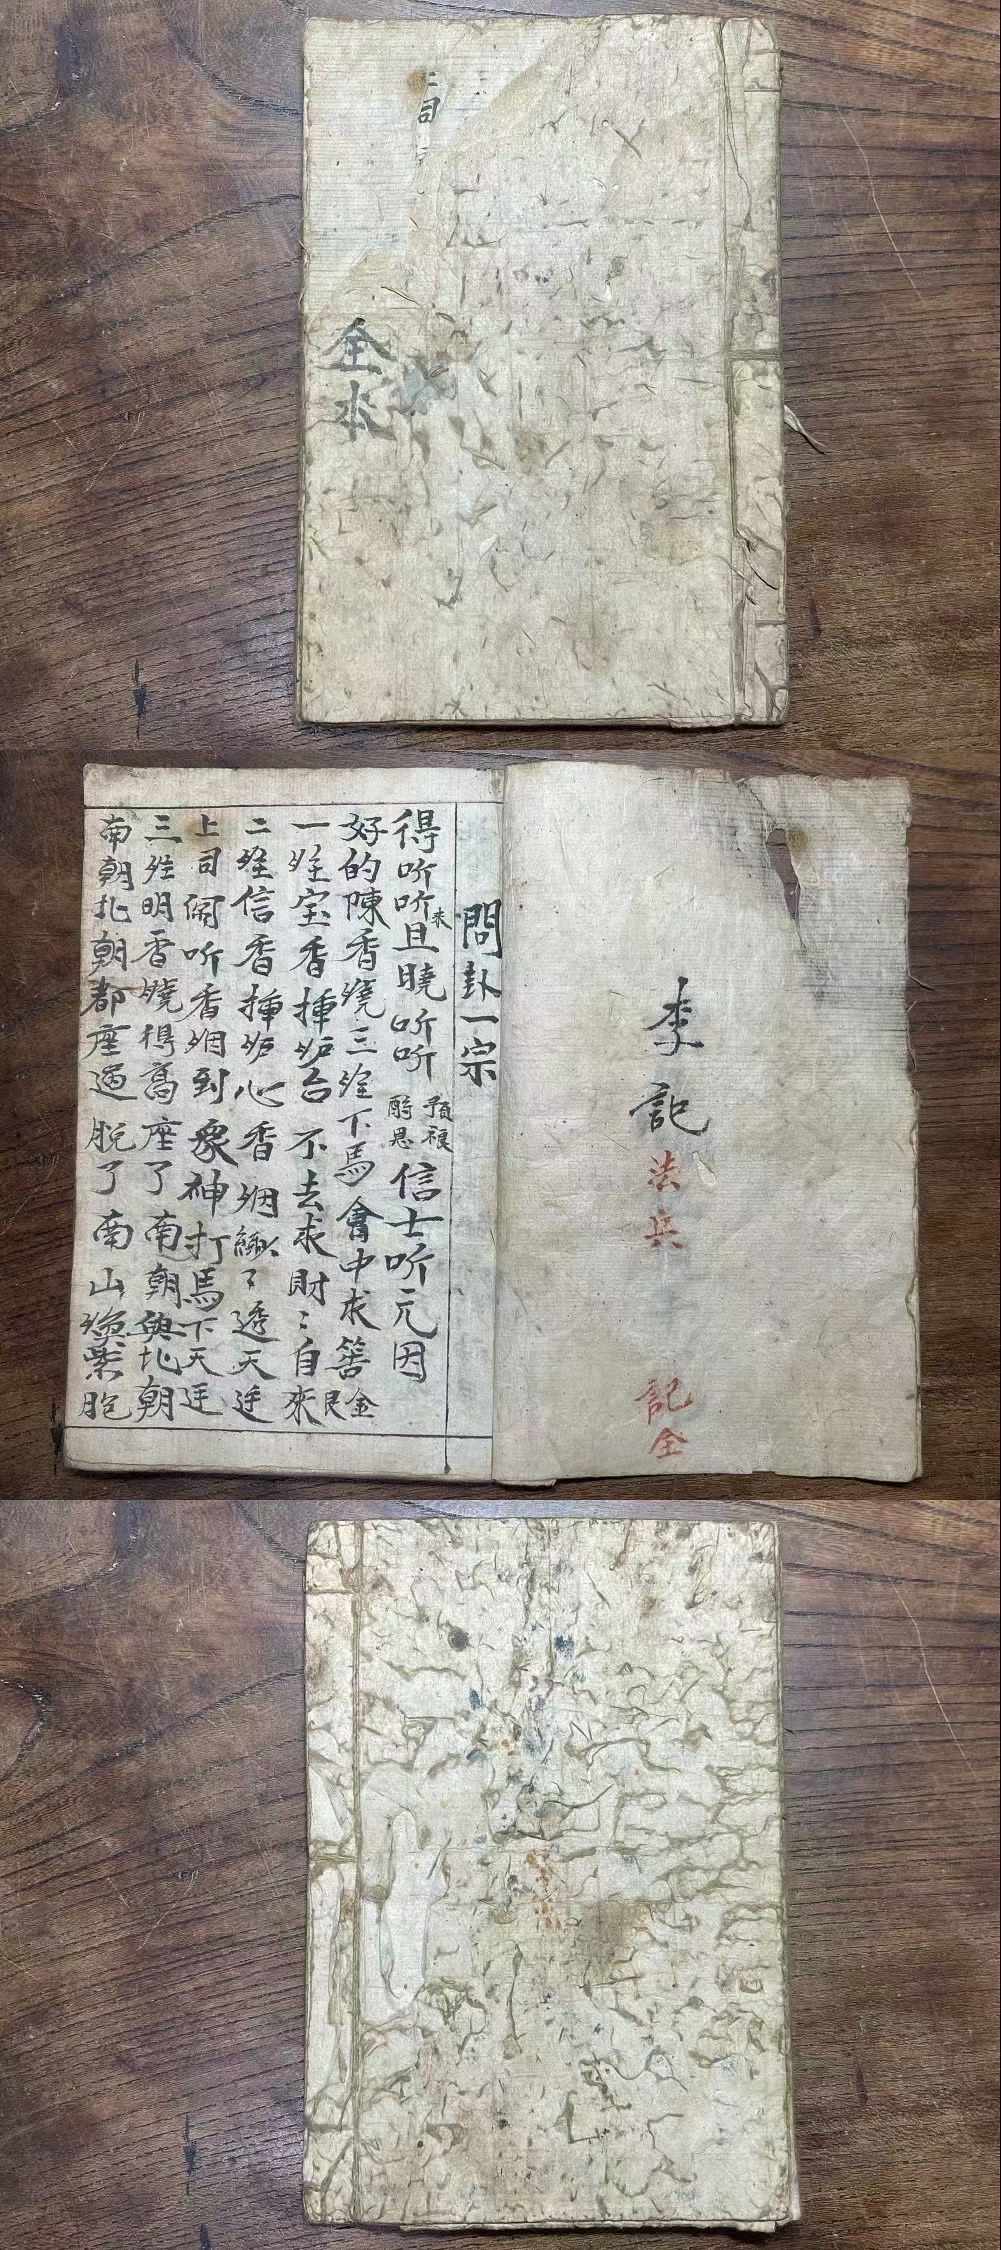 司
全本
李記
法兵
記全
問卦一宗
得听听且來曉听听 預禳 酧恩 信士听元因
好的陳香燒三炷下馬會中求善金民
一炷宝香揷炉台不去求財〻自來
二炷信香揷炉心香烟緲〻透天廷
上司闻听香烟到衆神打馬下天廷
三炷明香燒得高座了南朝與北朝
南朝北朝都座過脫了南山換紫胞